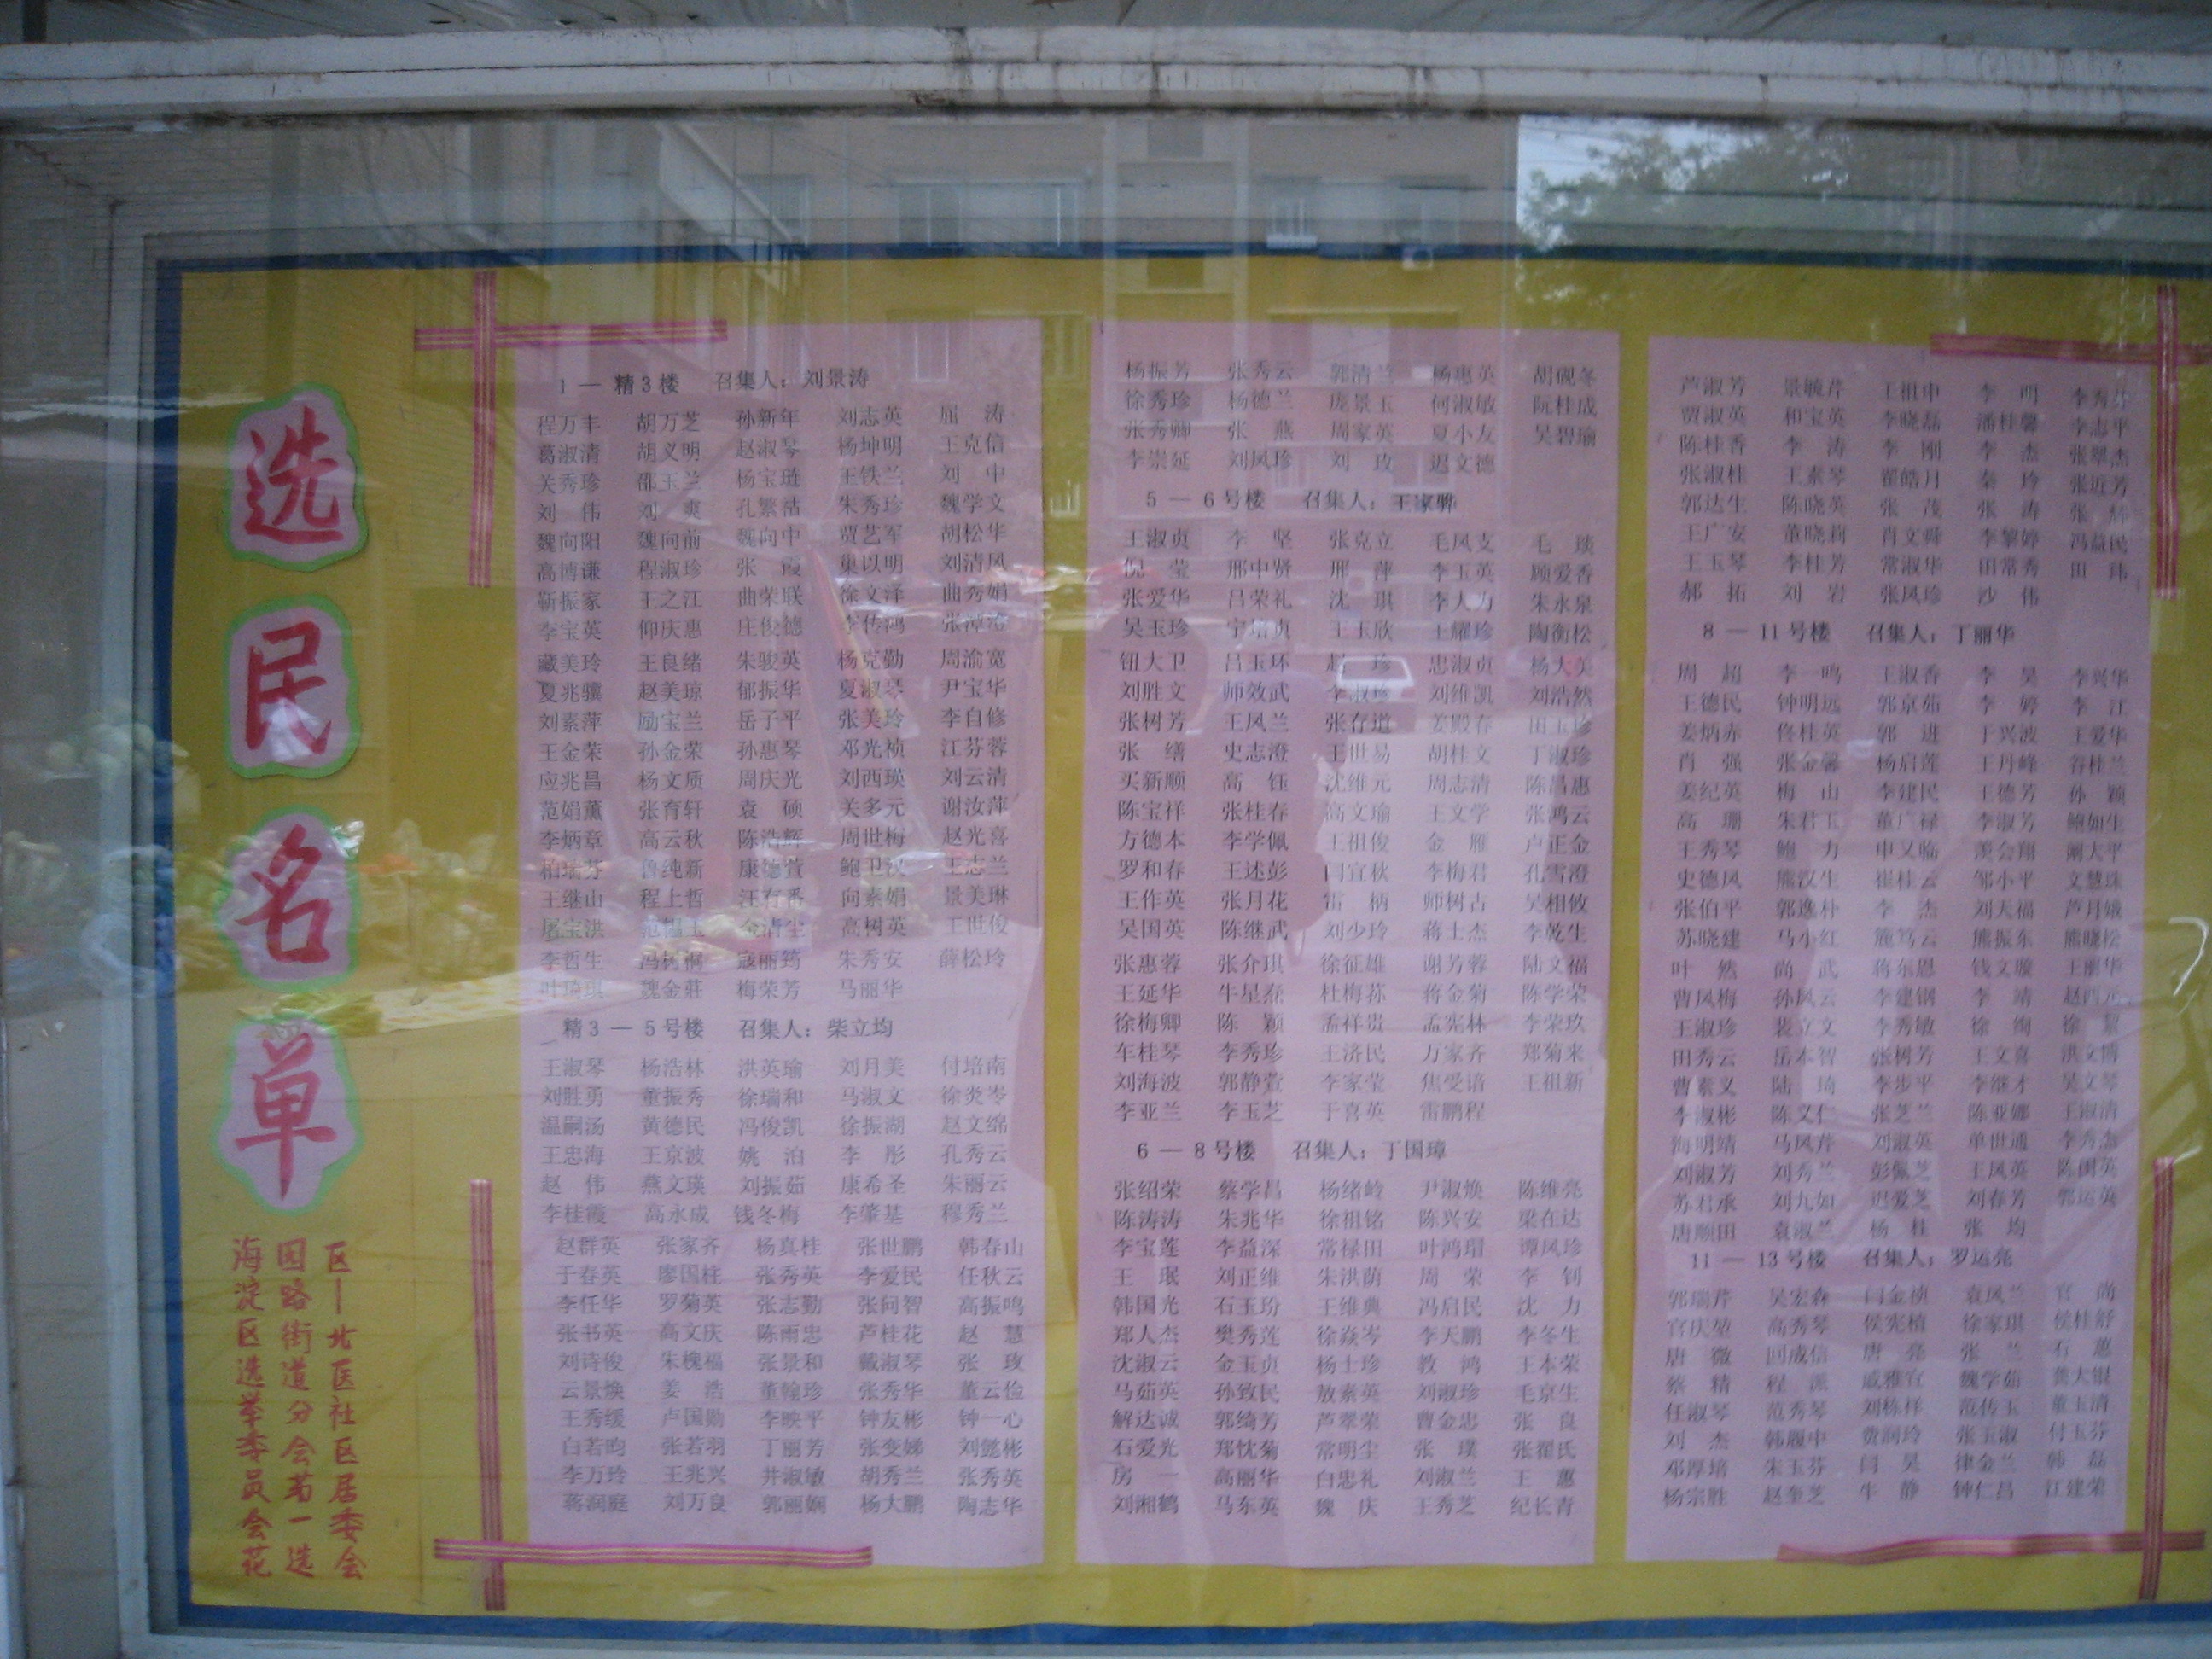 选民名单
海淀区选举委员会花
园路街道分会第一选
区—北医社区居委会
1 — 精3楼 召集人：刘景涛
程万丰 胡万芝 孙新年 刘志英 屈 涛
葛淑清 胡义明 赵淑琴 杨坤明 王克信
关秀珍 邵玉兰 杨宝琏 王铁兰 刘 中
刘 伟 刘 爽 孔繁祜 朱秀珍 魏学文
魏向阳 魏向前 魏向中 贾艺军 胡松华
高博谦 程淑珍 张 霞 巢以明 刘清风
靳振家 王之江 曲荣联 徐文泽 曲秀娟
李宝英 仰庆惠 庄俊德 李传鸿
藏美玲 王良绪 朱骏英 杨克勤 周渝宽
夏兆骥 赵美琼 郁振华 夏淑琴 尹宝华
刘素萍 励宝兰 岳子平 张美玲 李自修
王金荣 孙金荣 孙惠琴 邓光祯 江芬蓉
应兆昌 杨文质 周庆光 刘西瑛 刘云清
范娟薰 张育轩 袁 硕 关多元 谢汝萍
李炳章 高云秋 陈浩辉 周世梅 赵光喜
柏瑞芬 鲁纯新 康德萱 鲍卫汉 王志兰
王继山 程上哲 汪有番 向素娟 景美琳
屠宝洪 高树英 王世俊
李哲生 冯树桐 寇丽筠 朱秀安 薛松玲
叶琦琪 魏金莊 梅荣芳 马丽华
精3 — 5号楼 召集人：柴立均
王淑琴 杨浩林 洪英瑜 刘月美 付培南
刘胜勇 董振秀 徐瑞和 马淑文 徐炎岑
温嗣汤 黄德民 冯俊凯 徐振湖 赵文绵
王忠海 王京波 姚 泊 李 彤 孔秀云
赵 伟 燕文瑛 刘振茹 康希圣 朱丽云
李桂霞 高永成 钱冬梅 李肇基 穆秀兰
赵群英 张家齐 杨真桂 张世鹏 韩春山
于春英 廖国柱 张秀英 李爱民 任秋云
李任华 罗菊英 张志勤 张问智 高振鸣
张书英 高文庆 陈雨忠 芦桂花 赵 慧
刘诗俊 朱槐福 张景和 戴淑琴 张 玫
云景焕 姜 浩 董翰珍 张秀华 董云俭
王秀缓 卢国勋 李映平 钟友彬 钟一心
白若昀 张若羽 丁丽芳 张变娣 刘懿彬
李万玲 王兆兴 井淑敏 胡秀兰 张秀英
蒋润庭 刘万良 郭丽娴 杨大鹏 陶志华
杨振芳 张秀云 郭清兰 杨惠英 胡砚冬
徐秀珍 杨德兰 庞景玉 何淑敏 阮桂成
张秀卿 张 燕 周家英 夏小友 吴碧瑜
李崇延 刘凤珍 刘 玫 迟文德
5 — 6号楼 召集人：王家骅
王淑贞 李 坚 张克立 毛凤支 毛 琰
倪 莹 邢中贤 邢 萍 李玉英 顾爱香
张爱华 吕荣礼 沈 琪 李大力 朱永泉
吴玉珍 宁培贞 王玉欣 王耀珍 陶衡松
钮大卫 吕玉环 赵 珍 忠淑贞 杨大美
刘胜文 师效武 李淑珍 刘维凯 刘浩然
张树芳 王凤兰 张存道 姜殿春 田玉珍
张 缮 史志澄 王世易 胡桂文 丁淑珍
买新顺 高 钰 沈维元 周志清 陈昌惠
陈宝祥 张桂春 高文瑜 王文学 张鸿云
方德本 李学佩 王祖俊 金 雁 卢正金
罗和春 王述彭 闫宜秋 李梅君 孔雪澄
王作英 张月花 雷 柄 师树古 吴相攸
吴国英 陈继武 刘少玲 蒋士杰 李乾生
张惠蓉 张介琪 徐征雄 谢芳蓉 陆文福
王延华 牛星焘 杜梅荪 蒋金菊 陈学荣
徐梅卿 陈 颖 孟祥贵 孟宪林 李荣玖
车桂琴 李秀珍 王济民 万家齐 郑菊来
刘海波 郭静萱 李家莹 焦受谙 王祖新
李亚兰 李玉芝 于喜英 雷鹏程
6 — 8号楼 召集人：丁国璋
张绍荣 蔡学昌 杨绪岭 尹淑焕 陈维亮
陈涛涛 朱兆华 徐祖铭 陈兴安 梁在达
李宝莲 李益深 常禄田 叶鸿瑁 谭凤珍
王 珉 刘正维 朱洪荫 周 荣 李 钊
韩国光 石玉玢 王维典 冯启民 沈 力
郑人杰 樊秀莲 徐焱岑 李天鹏 李冬生
沈淑云 金玉贞 杨士珍 教 鸿 王本荣
马茹英 孙致民 敖素英 刘淑珍 毛京生
解达诚 郭绮芳 芦翠荣 曹金忠 张 良
石爱光 郑忱菊 常明尘 张 璞 张翟氏
房 一 高丽华 白忠礼 刘淑兰 王 蕙
刘湘鹤 马东英 魏 庆 王秀芝 纪长青
芦淑芳 景毓芹 王祖申 李 明 李秀芬
贾淑英 和宝英 李晓磊 潘桂馨 李志平
陈桂香 李 涛 李 刚 李 杰 张翠杰
张淑桂 王素琴 翟皓月 秦 玲 张近芳
郭达生 陈晓英 张 茂 张 涛 张 辉
王广安 董晓莉 肖文舜 李黎婷 冯益民
王玉琴 李桂芳 常淑华 田常秀 田 玮
郝 拓 刘 岩 张凤珍 沙 伟
8 — 11号楼 召集人：丁丽华
周 超 李一鸣 王淑香 李 昊 李兴华
王德民 钟明远 郭京茹 李 婷 李 江
姜炳赤 佟桂英 郭 进 于兴波 王爱华
肖 强 张金馨 杨启莲 王丹峰 谷桂兰
姜纪英 梅 山 李建民 王德芳 孙 颖
高 珊 朱君玉 董广禄 李淑芳 鲍如生
王秀琴 鲍 力 申又临 羡会翔 阚大平
史德凤 熊汉生 崔桂云 邹小平 文慧珠
张伯平 郭逸朴 李 杰 刘天福 芦月娥
苏晓建 马小红 熊笃云 熊振东 熊晓松
叶 然 尚 武 蒋东恩 钱文璇 王丽华
曹凤梅 孙凤云 李建钢 李 靖 赵西元
王淑珍 裴立文 李秀敏 徐 绚 徐 絮
田秀云 岳本智 张树芳 王文喜 洪文博
曹素义 陆 琦 李步平 李继才 吴文琴
李淑彬 陈义仁 张芝兰 陈亚娜 王淑清
海明靖 马凤芹 刘淑英 单世通
刘淑芳 刘秀兰 彭佩芝 王凤英 陈国英
苏君承 刘九如 迟爱芝 刘春芳 郭运英
唐顺田 袁淑兰 杨 桂 张 均
11 — 13号楼 召集人：罗运亮
郭瑞芹 吴宏森 闫金祯 袁凤兰 官 尚
官庆堃 高秀琴 侯宪植 徐家琪 侯桂舒
唐 微 回成信 唐 亮 张 兰 石 蕙
蔡 精 程 派 戚雅宜 魏学茹 龚大银
任淑琴 范秀琴 刘栋样 范传玉 董玉清
刘 杰 韩履中 费润玲 张玉淑 付玉芬
邓厚培 朱玉芬 闫 昊 律金兰 韩 磊
杨宗胜 赵奎芝 牛 静 钟仁昌 江建荣